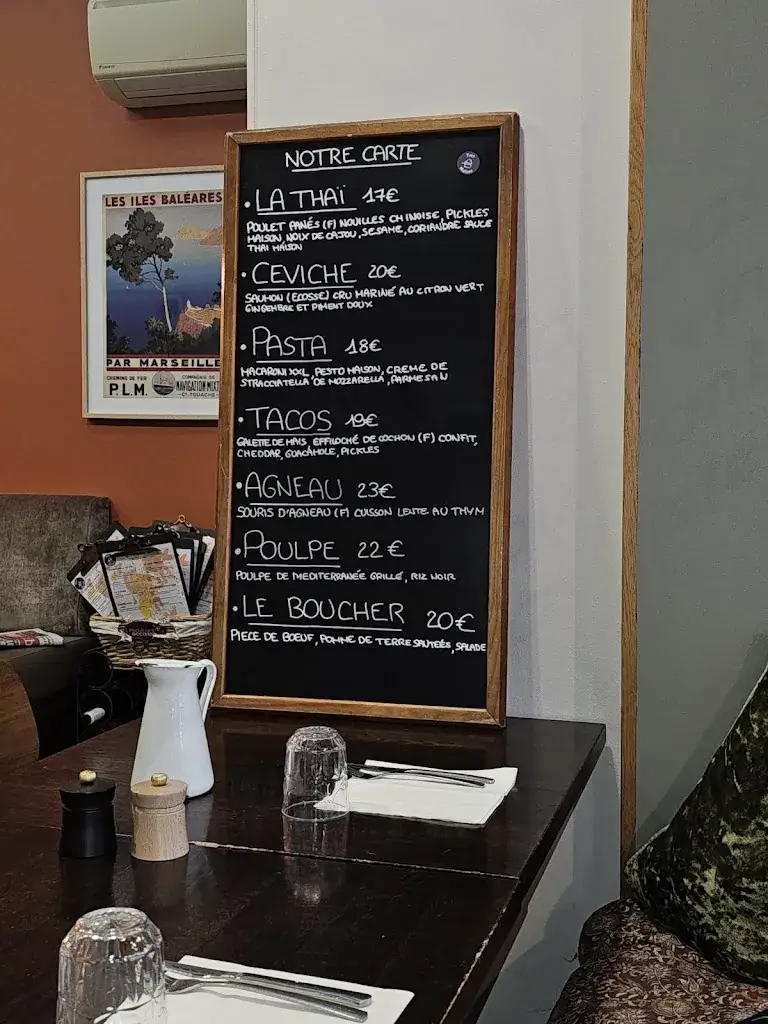 NOTRE CARTE
• LA THAÏ 17€
POULET PANÉS (F) NOUILLES CHINOISE, PICKLES
MAISON, NOIX DE CAJOU, SESAME, CORIANDRE SAUCE
THAI MAISON
• CEVICHE 20€
SAUMON (ECOSSE) CRU MARINÉ AU CITRON VERT
GINGEMBRE ET PIMENT DOUX
• PASTA 18€
MACARONI XXL, PESTO MAISON, CREME DE
STRACCIATELLA DE MOZZARELLA, PARMESAN
• TACOS 19€
GALETTE DE MAIS, EFFILOCHÉ DE COCHON (F) CONFIT,
CHEDDAR, GUACAMOLE, PICKLES
• AGNEAU 23€
SOURIS D'AGNEAU (F) CUISSON LENTE AU THYM
• POULPE 22€
POULPE DE MEDITERRANÉE GRILLÉ, RIZ NOIR
• LE BOUCHER 20€
PIECE DE BOEUF, POMME DE TERRE SAUTEÉS, SALADE
LES ILES BALÉARES
PAR MARSEILLE
CHEMINS DE FER
P.L.M.
COMPAGNIE DE
NAVIGATION MIXTE
Cie TOUACHE